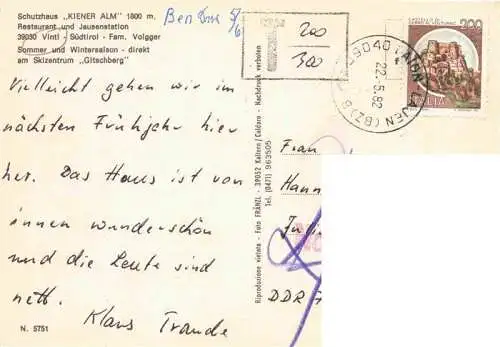 Schutzhaus „KIENER ALM" 1800 m.
Restaurant und Jausenstation
39030 Vintl - Südtirol - Fam. Volgger
Sommer und Wintersaison - direkt
am Skizentrum „Gitschberg"
Vielleicht gehen wir im
nächsten Frühjahr hier
her. Das Haus ist von
innen wunderschön
und die Leute sind
nett.
Klaus Traude
N. 5751
Riproduzione vietata - Foto FRÄNZL - 39052 Kaltern/Caldaro - Nachdruck verboten
Tel. (0471) 963505
200
300
39040
22.-5.82
LAJEN (BZ)
200
Frau
Hann
DDR